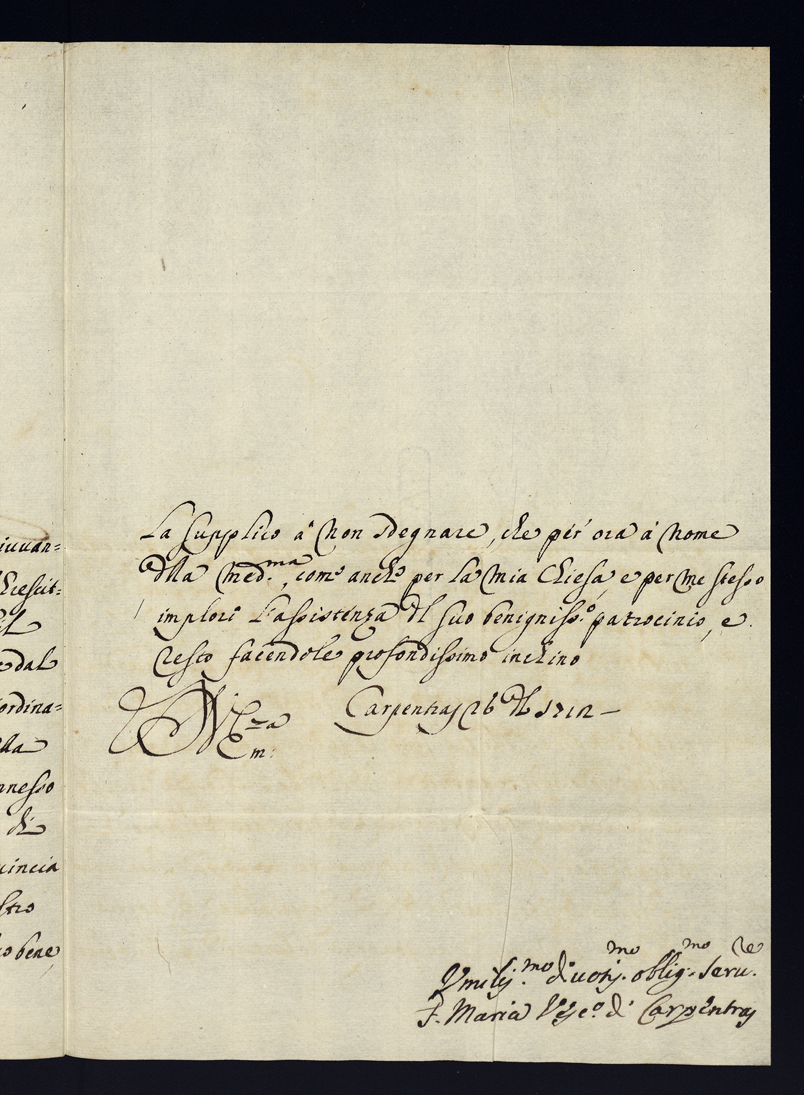 iuuan=
chiescit=
il
e dal
ordina=
lla
nnesso
di
uincia
stro
o bene
La supplico a' non sdegnare, che per ora a' nome
dlla med.ma, come anche per la mia Chiesa, e per me stesso
implori l'assistenza dl suo benigniss.o patrocinio, e
resto facendole profondissimo inchino
Carpentras 26 dl 1712 –
Em.za
Vmiliss.mo diuotiss.mo oblig.mo Seru.re
F. Maria Vesc.o di Carpentras